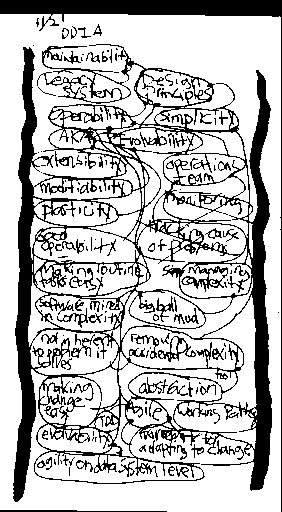 11/21
DDIA
maintainability
Legacy System
Design Principles
operability
simplicity
AKA
evolvability
extensibility
operations team
modifiability
monitoring
plasticity
tracking cause of problems
good operability
making routine tasks easy
managing complexity
software mired in complexity
big ball of mud
not inherent to problem it solves
removing accidental complexity
abstraction
tool
making change easy
Agile
working pattern
evolvability
adapting to change
agility on data system level